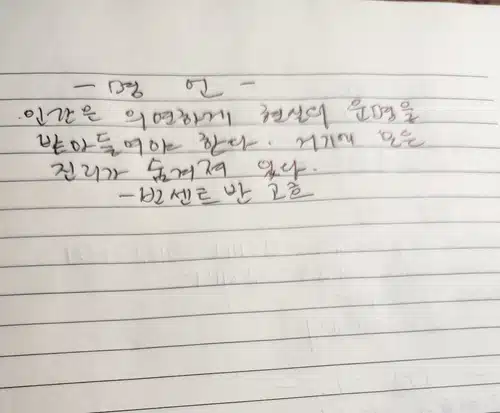 - 명 언 -
인간은 의연하게 현실의 운명을
받아들여야 한다. 거기에 모든
진리가 숨겨져 있다.
- 빈센트 반 고흐